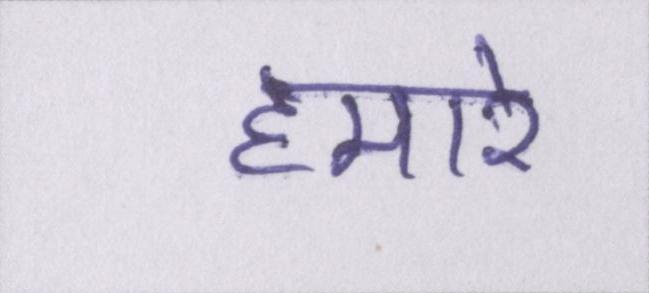 हमारे